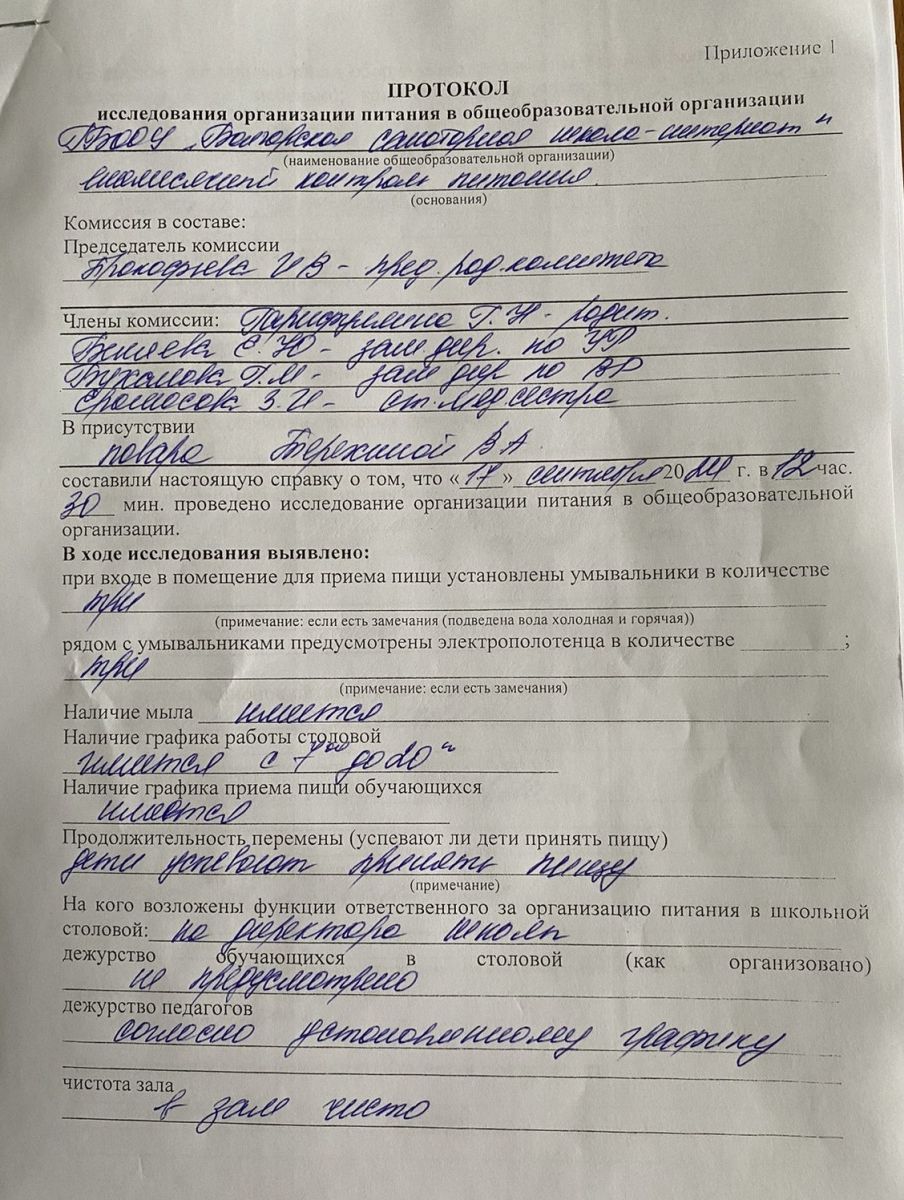 Приложение 1
ПРОТОКОЛ
исследования организации питания в общеобразовательной организации
санаторная школа-интернат"
(наименование общеобразовательной организации)
контроль питания.
(основания)
Комиссия в составе:
Председатель комиссии
Прокофьева И В - пред. род. комитета
Члены комиссии: Г. Н - родит.
Е. Ю - зам дир. по УР
Г. М - зам дир по ВР
З. И - ст. медсестра
В присутствии
повара Терехиной В А.
составили настоящую справку о том, что «17» сентября 2024 г. в 12 час.
30 мин. проведено исследование организации питания в общеобразовательной
организации.
В ходе исследования выявлено:
при входе в помещение для приема пищи установлены умывальники в количестве
три
(примечание: если есть замечания (подведена вода холодная и горячая))
рядом с умывальниками предусмотрены электрополотенца в количестве ;
три
(примечание: если есть замечания)
Наличие мыла имеется
Наличие графика работы столовой
имеется с 7⁰⁰ до 20⁰⁰
Наличие графика приема пищи обучающихся
имеется
Продолжительность перемены (успевают ли дети принять пищу)
дети успевают принять пищу
(примечание)
На кого возложены функции ответственного за организацию питания в школьной
столовой: на директора школы
дежурство обучающихся в столовой (как организовано)
не предусмотрено
дежурство педагогов
согласно установленному графику
чистота зала
в зале чисто